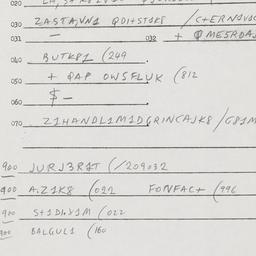 020
030 ZASTA,VN1 QDI+ST1K8 /C+ERN1V1C
031 — 032 + QME5RDA
040 BUTK81 (249.
050 + QAP OWSFLUK (812
060 $ —
070 Z1HANDL1M1DGRINCAJK8 /G81M
900 JURJ3R4T (/209032
900 A.Z1K8 (022 FONFAC+ (996
900 (022
900 BALGUL1 (160